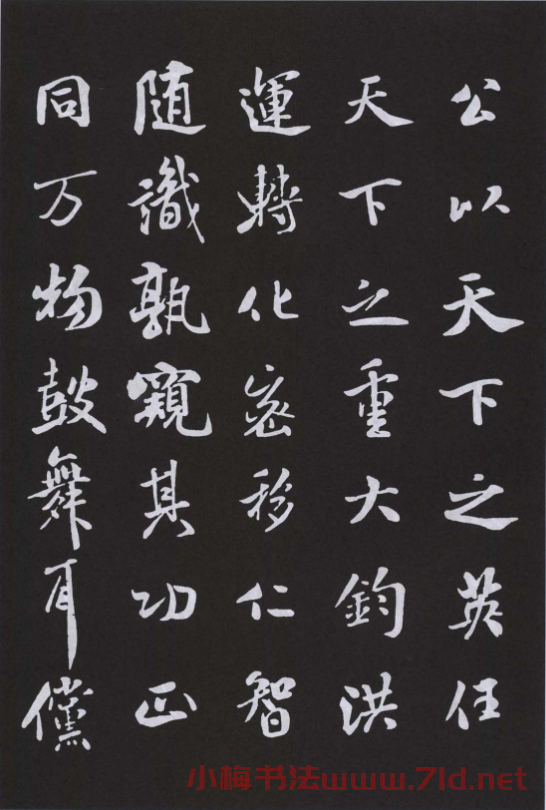 公以天下之英任
天下之重大鈞洪
運轉化密移仁智
随識孰窺其功正
同万物鼓舞有儻
小梅书法www.7ld.net